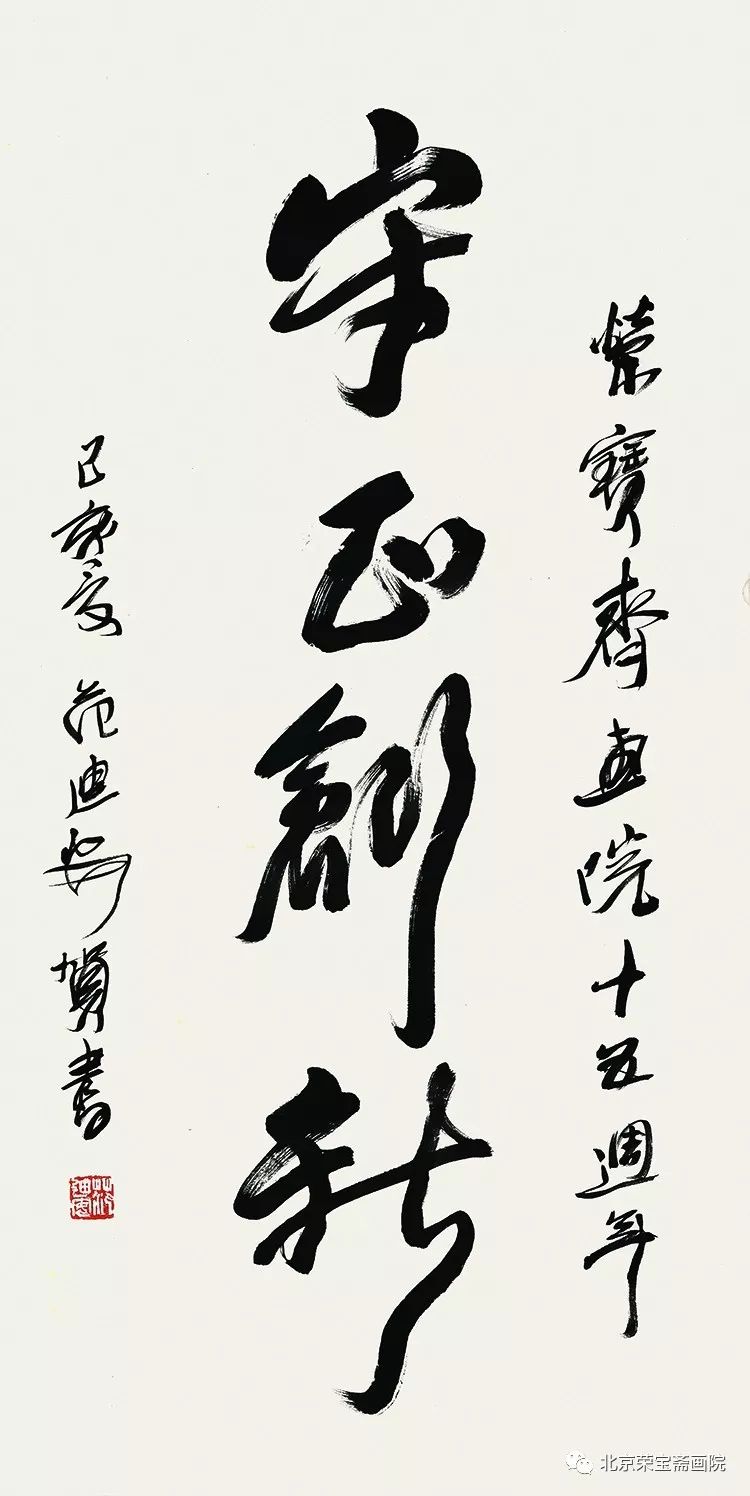 榮寶齋畫院十五週年
守正創新
己亥夏 范迪安賀書
北京荣宝斋画院